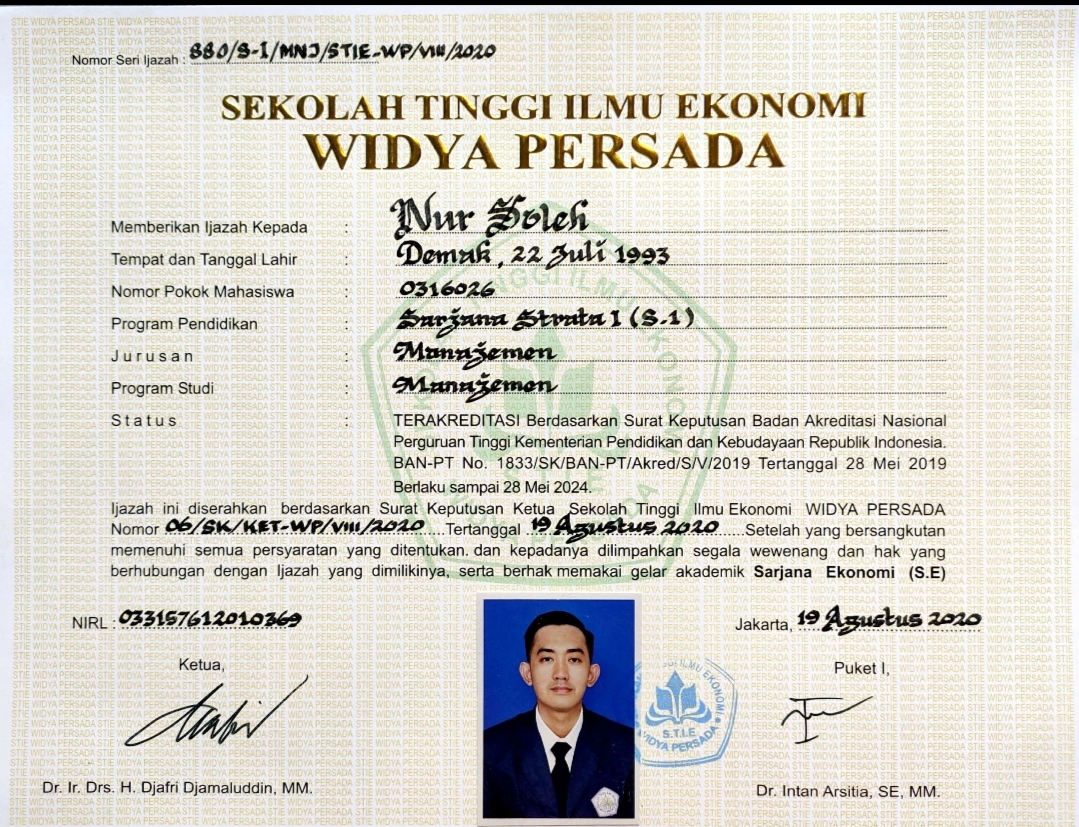 Nomor Seri Ijazah : 880/S-1/MNJ/STIE-WP/VIII/2020
SEKOLAH TINGGI ILMU EKONOMI
WIDYA PERSADA
Memberikan Ijazah Kepada : Nur Soleh
Tempat dan Tanggal Lahir : Demak, 22 Juli 1993
Nomor Pokok Mahasiswa : 0316026
Program Pendidikan : Sarjana Strata 1 (S.1)
Jurusan : Manajemen
Program Studi : Manajemen
Status : TERAKREDITASI Berdasarkan Surat Keputusan Badan Akreditasi Nasional
Perguruan Tinggi Kementerian Pendidikan dan Kebudayaan Republik Indonesia.
BAN-PT No. 1833/SK/BAN-PT/Akred/S/V/2019 Tertanggal 28 Mei 2019
Berlaku sampai 28 Mei 2024.
Ijazah ini diserahkan berdasarkan Surat Keputusan Ketua Sekolah Tinggi Ilmu Ekonomi WIDYA PERSADA
Nomor 06/SK/KET-WP/VIII/2020 Tertanggal 19 Agustus 2020 Setelah yang bersangkutan
memenuhi semua persyaratan yang ditentukan. dan kepadanya dilimpahkan segala wewenang dan hak yang
berhubungan dengan Ijazah yang dimilikinya, serta berhak memakai gelar akademik Sarjana Ekonomi (S.E)
NIRL : 033157612010369
Jakarta, 19 Agustus 2020
Ketua,
Puket I,
S.T.I.E
WIDYA PERSADA
Dr. Ir. Drs. H. Djafri Djamaluddin, MM.
Dr. Intan Arsitia, SE, MM.